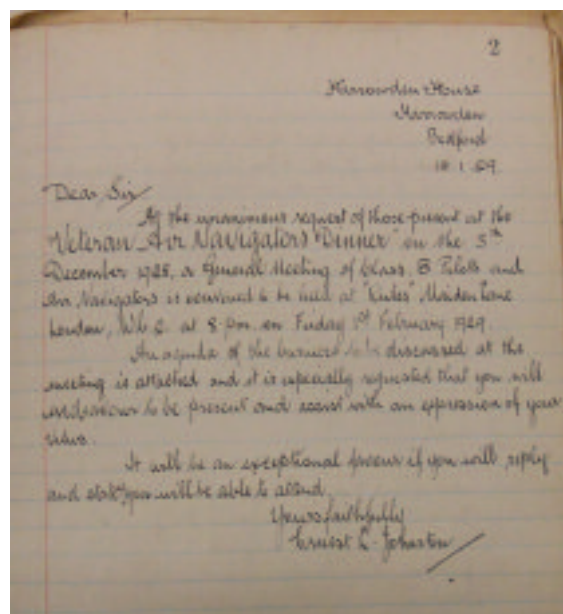 2
Harrowden House
Harrowden
Bedford
18.1.29.
Dear Sir
At the unanimous request of those present at the
"Veteran Air Navigators' Dinner" on the 5th
December 1928, a General Meeting of Class B Pilots and
Air Navigators is convened to be held at "Rules" Maiden Lane
London, W.C 2. at 8. p.m. on Friday 1st February 1929.
An agenda of the business to be discussed at the
meeting is attached and it is especially requested that you will
endeavour to be present and assist with an expression of your
views.
It will be an exceptional favour if you will reply
and state you will be able to attend.
Yours faithfully
Ernest L. Johnston